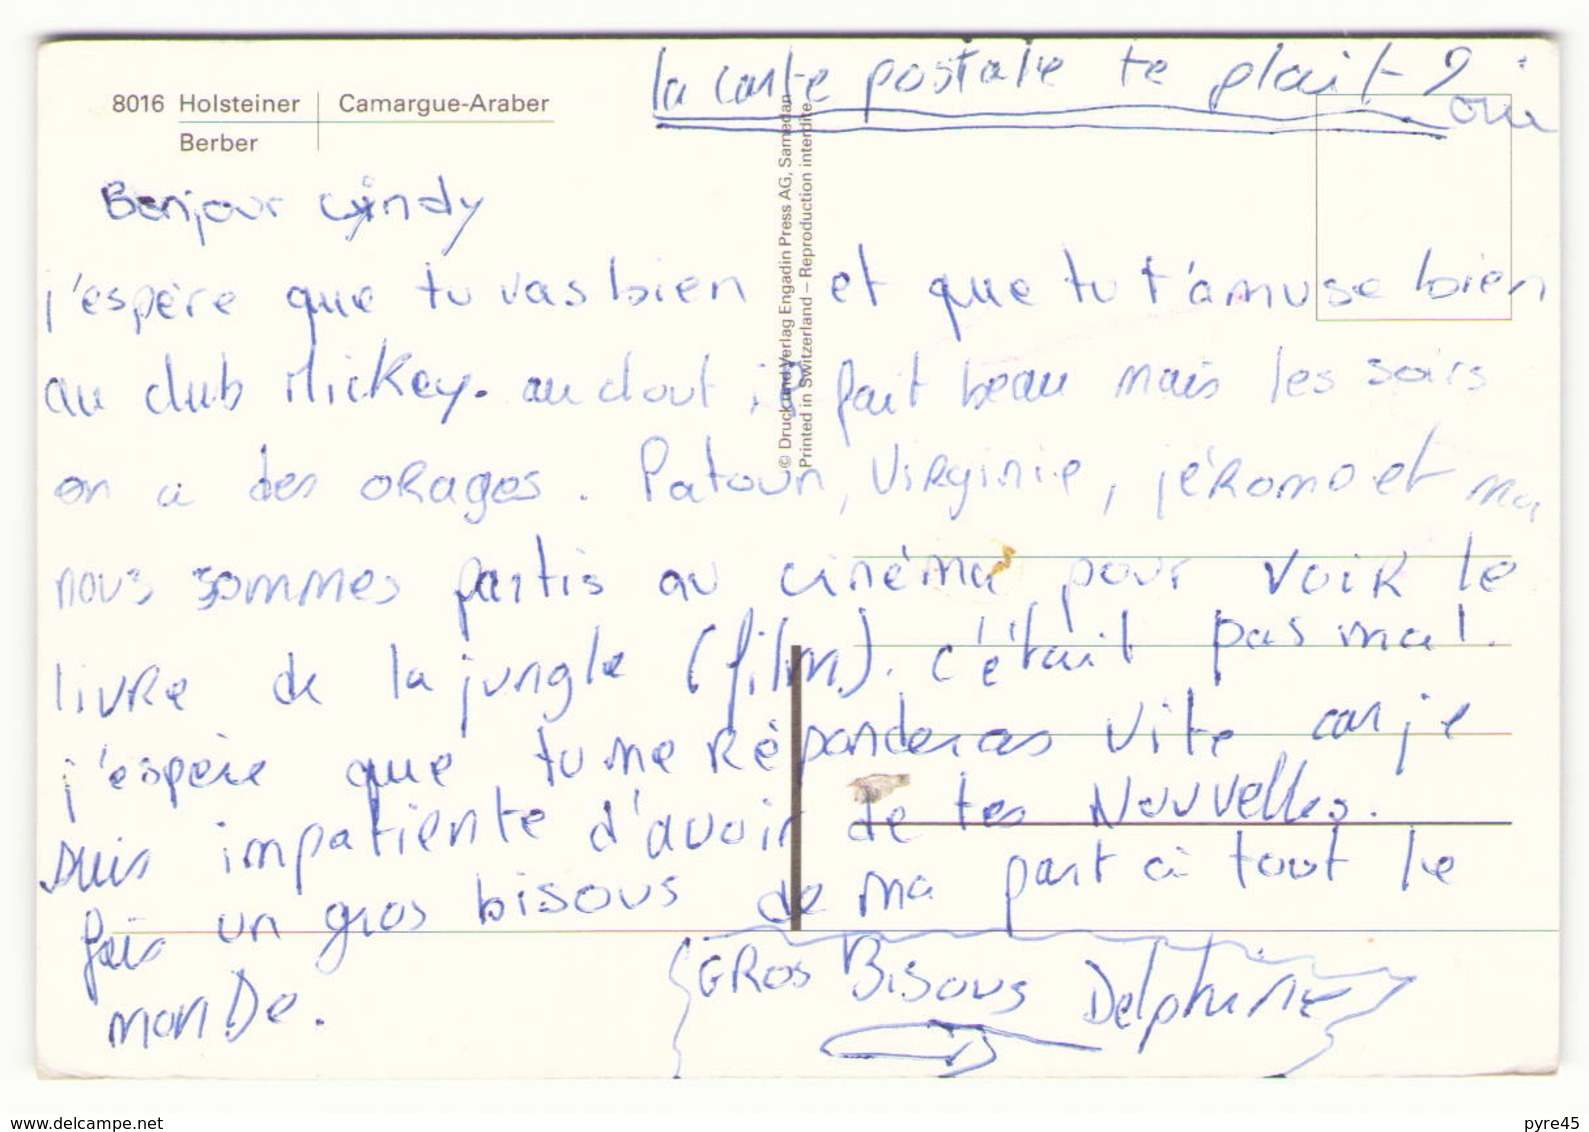 la carte postale te plait ?
oui
8016 Holsteiner Camargue-Araber
Berber
© Druck und Verlag Engadin Press AG, Samedan
Printed in Switzerland – Reproduction interdite
Bonjour Cyndy
j'espère que tu vas bien et que tu t'amuse bien
au club Mickey. au dout il fait beau mais les soirs
on a des orages. Patoun, Virginie, jérome et ma
nous sommes partis au cinéma pour voir le
livre de la jungle (film). c'était pas mal.
j'espère que tu me réponderas vite car je
suis impatiente d'avoir de tes Nouvelles.
fais un gros bisous de ma part à tout le
monde.
GROS Bisous Delphine
www.delcampe.net
pyre45